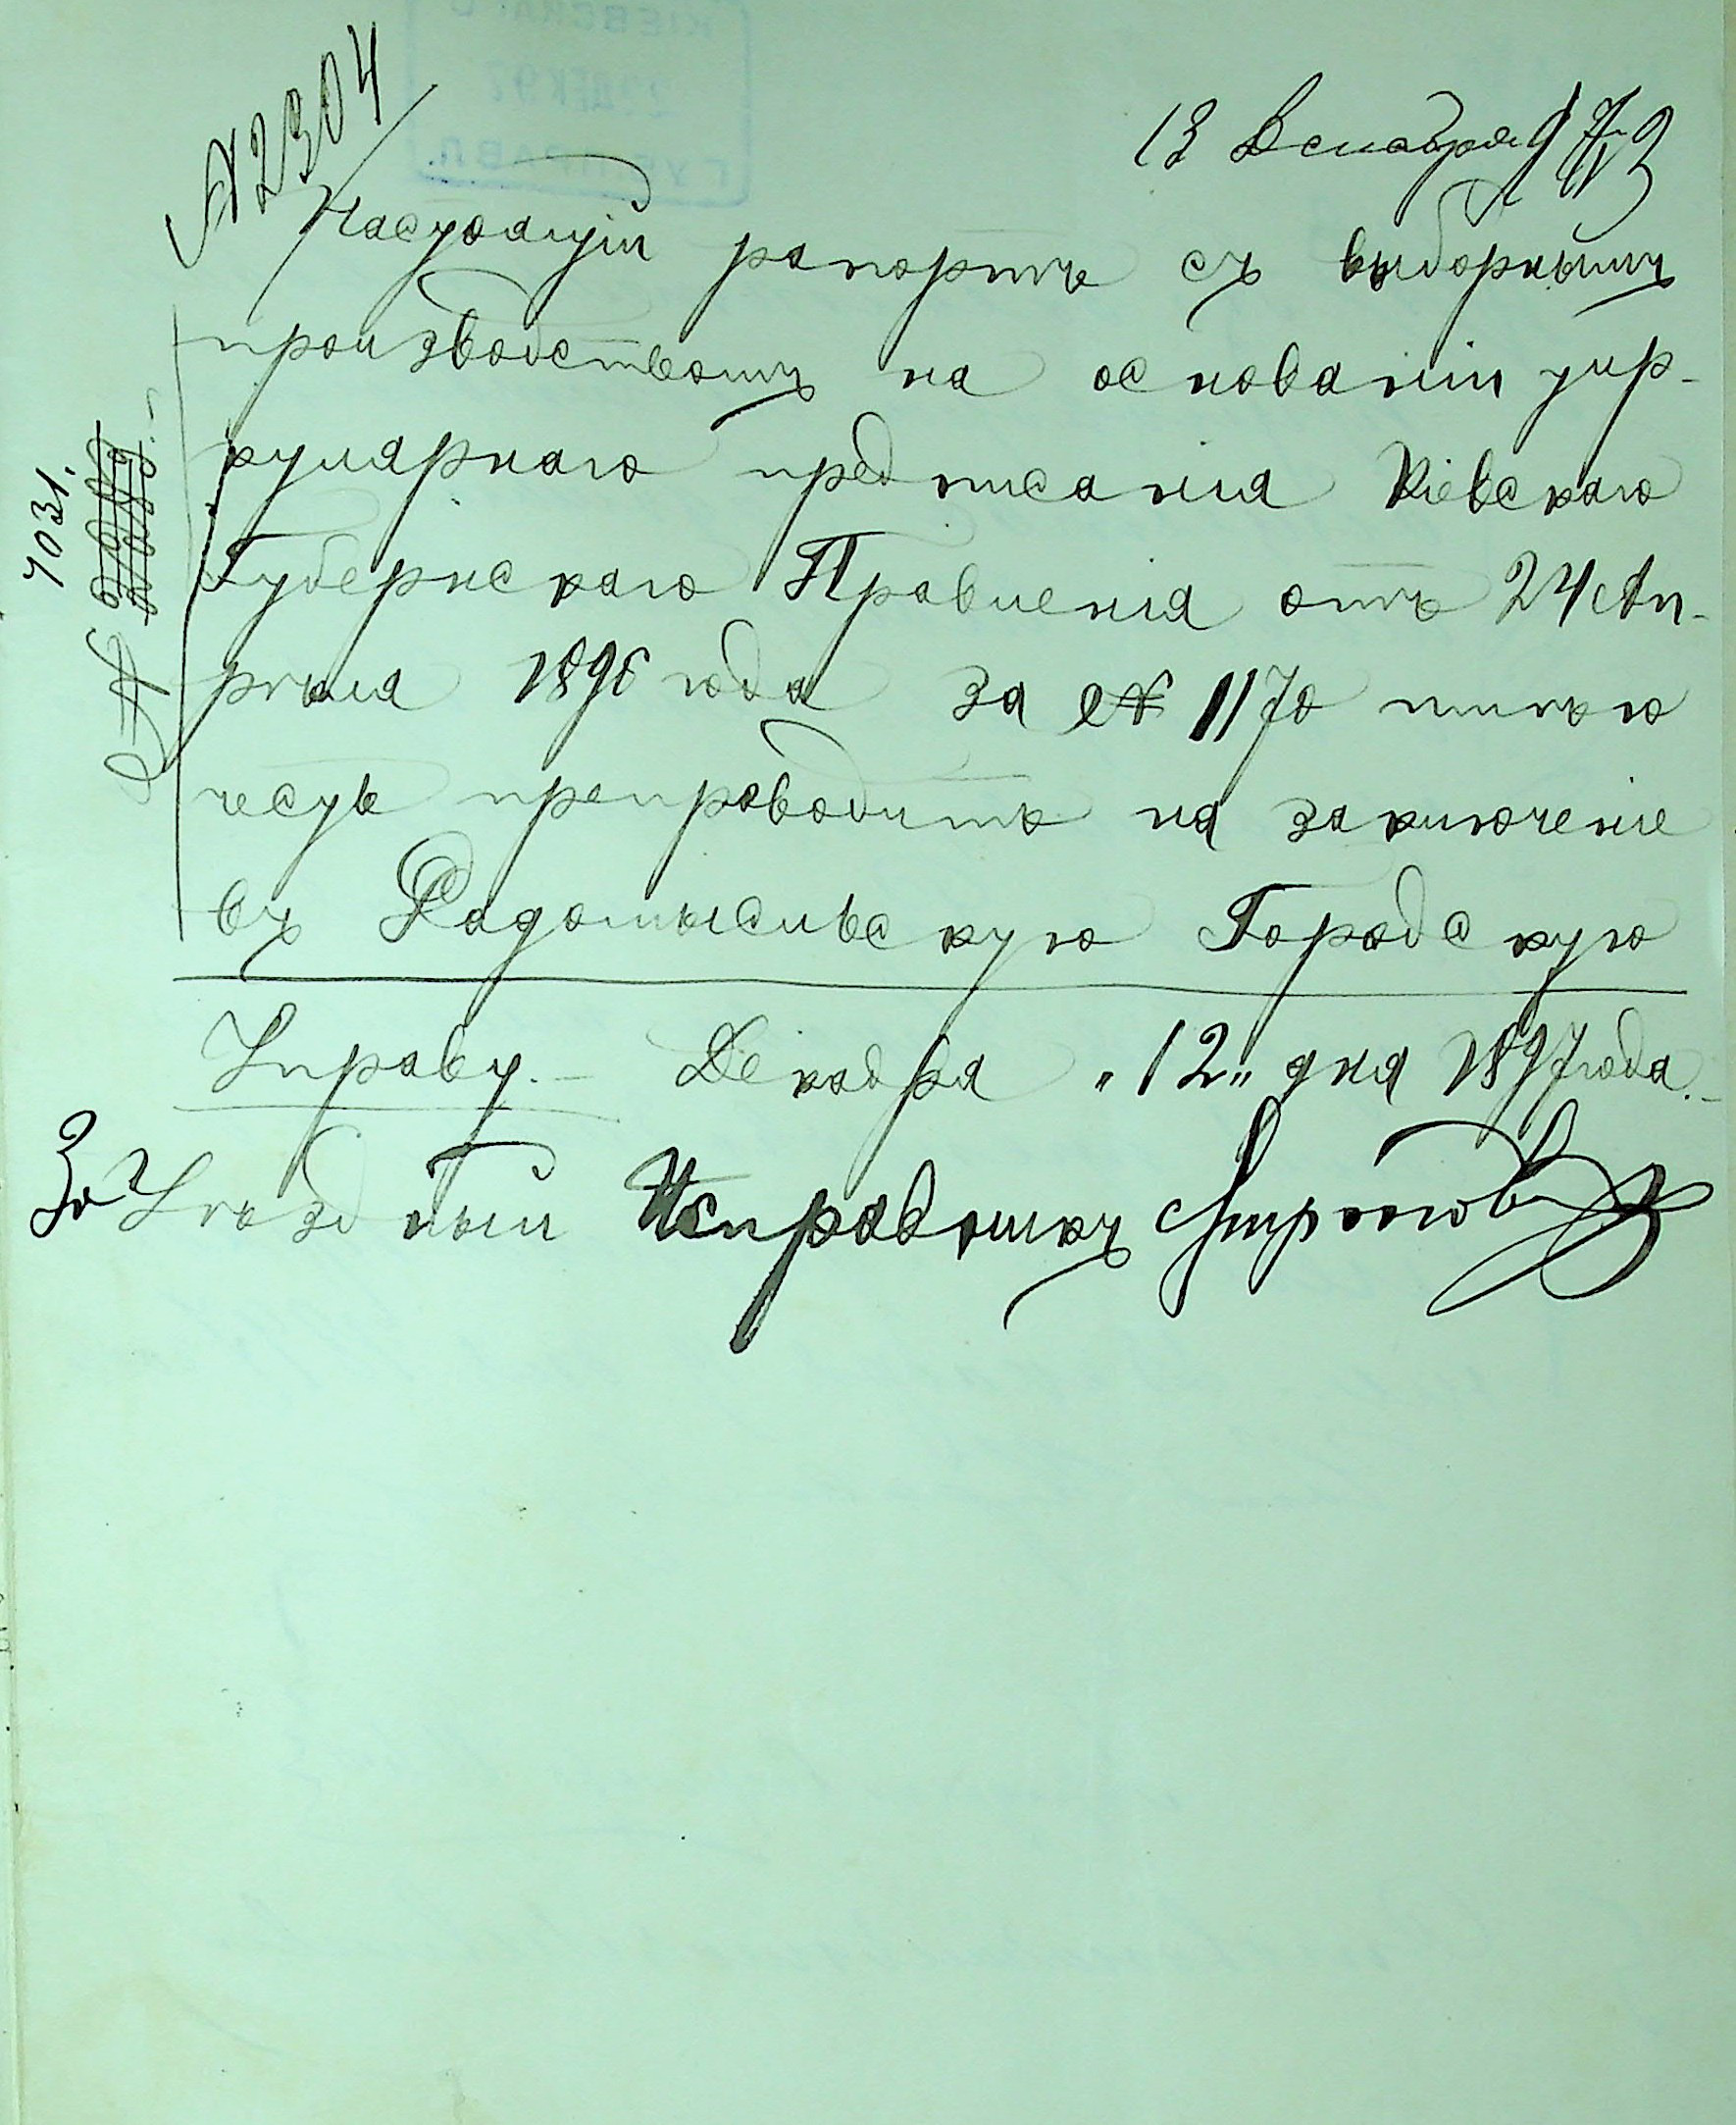 № 2304
13 Декабря 97 г
Настоящій рапортъ съ выборнымъ
производствомъ на основаніи цир-
кулярнаго предписанія Кіевскаго
Губернскаго Правленія отъ 24 Ап-
рѣля 1896 года за № 1170 имѣю
честь препроводить на заключеніе
въ Радомысльскую Городскую
Управу. Декабря „12„ дня 1897 года.
За Уѣздный Исправникъ
№
7031.